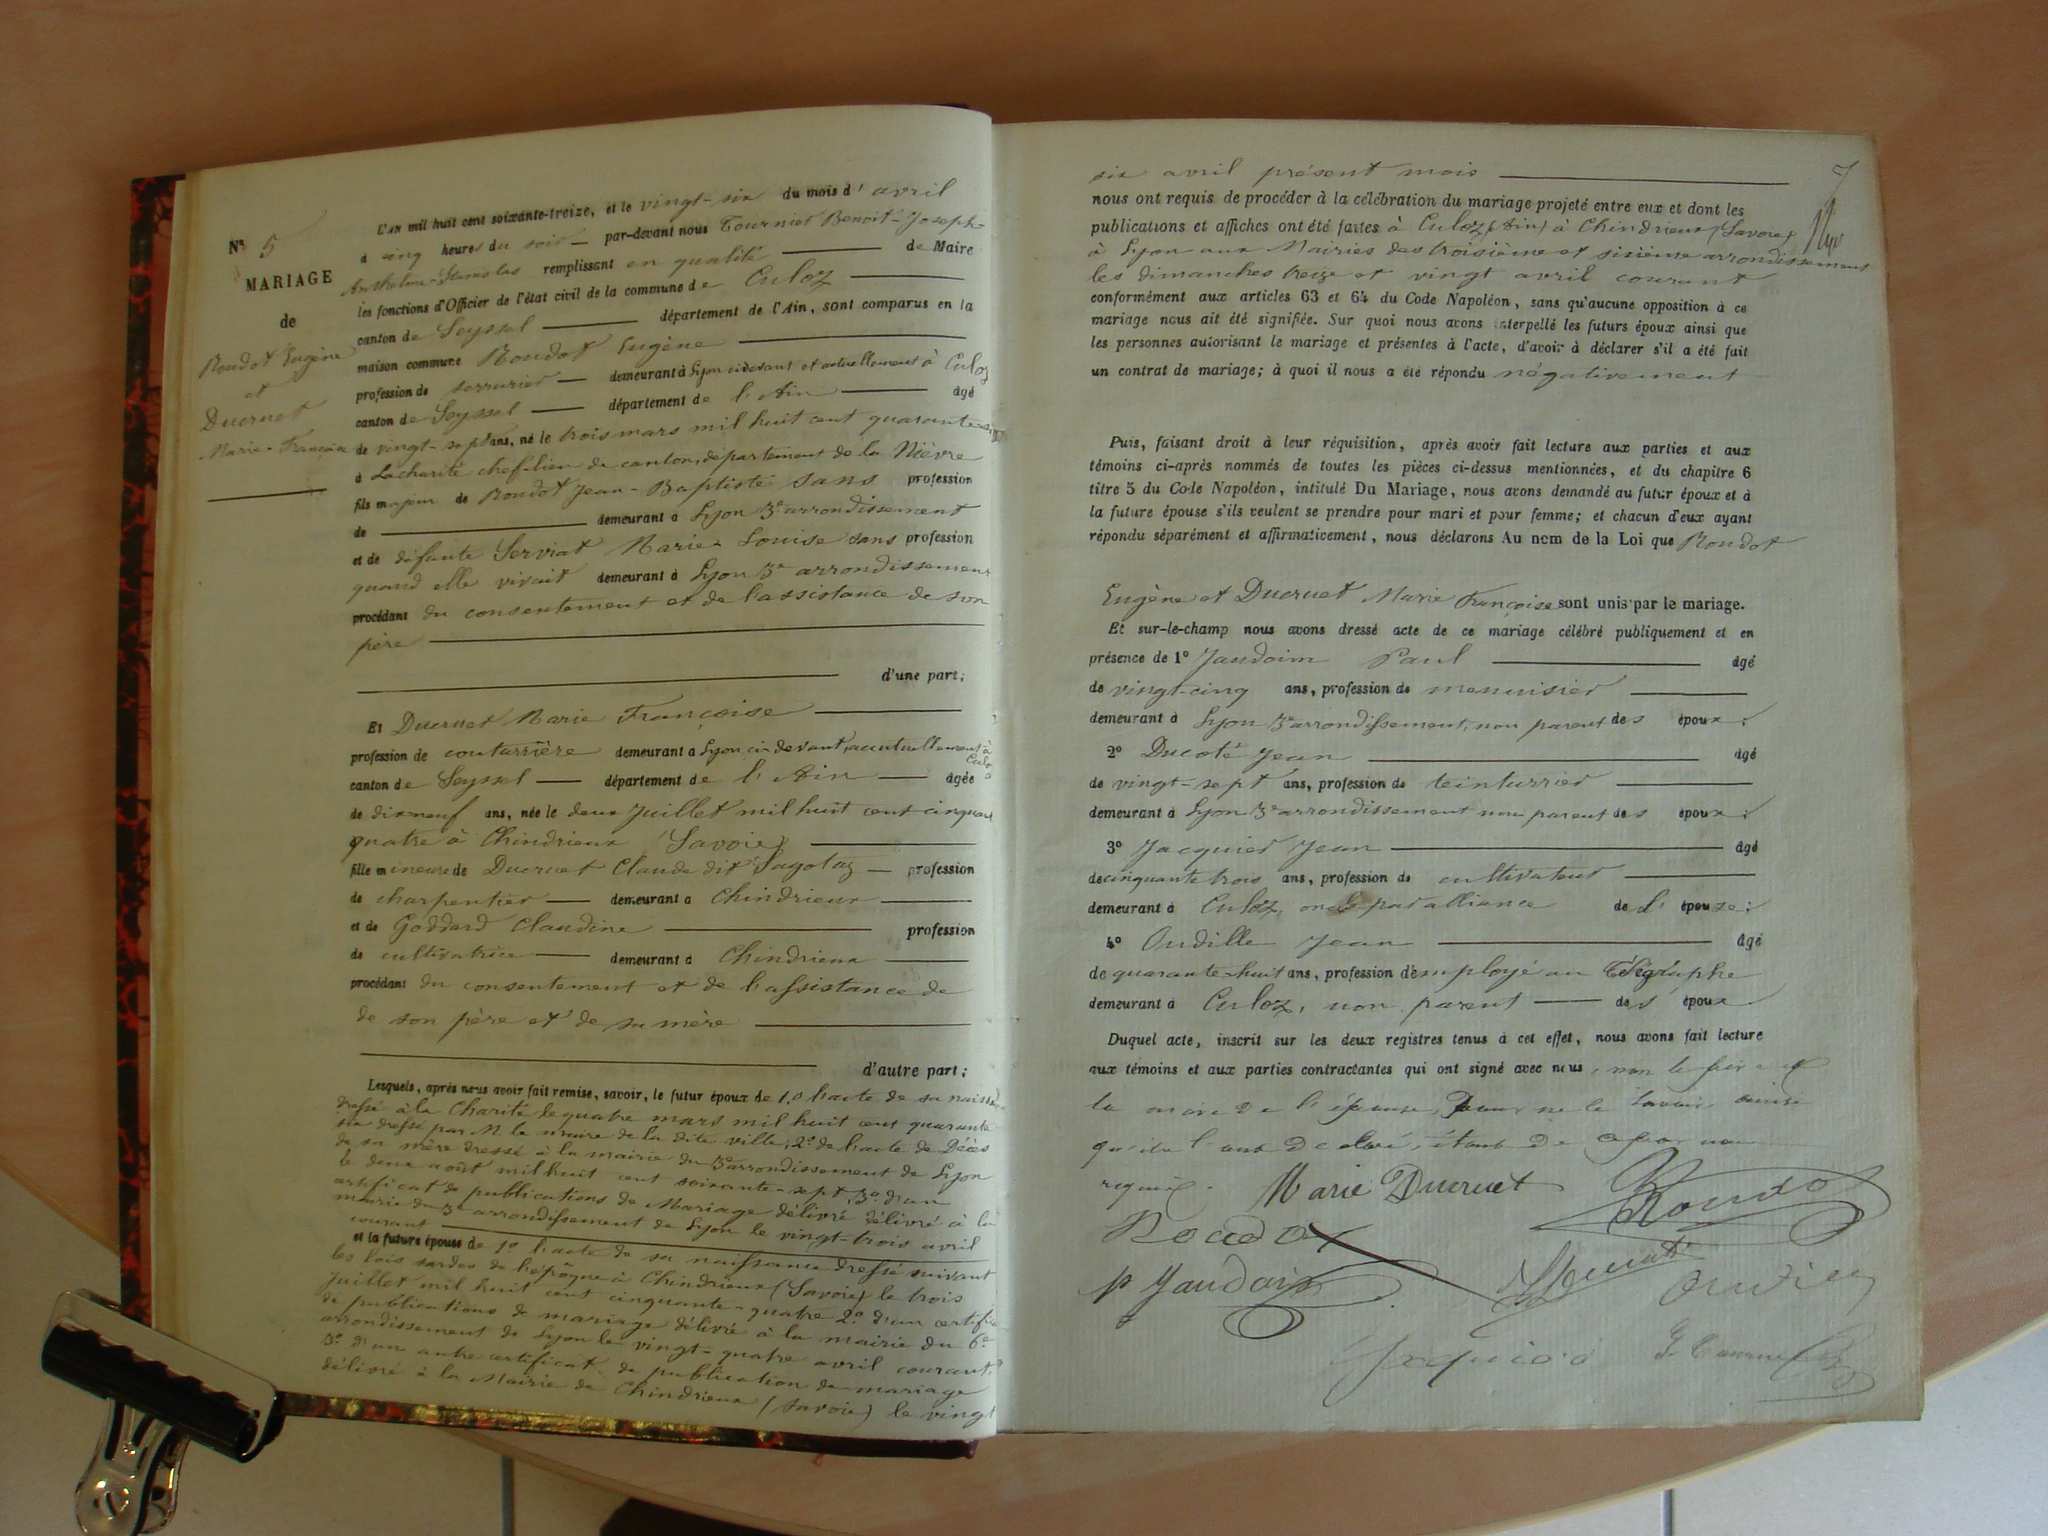 N° 5
MARIAGE
de
Roudot Eugène
et
Ducruet
Marie-Françoise
L'an mil huit cent soixante-treize, et le vingt-six du mois d' avril
à cinq heures du soir par-devant nous Tournier Benoit-Joseph-
Anthelme-Stanislas remplissant en qualité de Maire
les fonctions d'Officier de l'état civil de la commune de Culoz
canton de Seyssel département de l'Ain, sont comparus en la
maison commune Roudot Eugène
profession de serrurier demeurant à Lyon ci-devant et actuellement à Culoz
canton de Seyssel département de l'Ain âgé
de vingt-sept ans, né le trois mars mil huit cent quarante-six
à Lacharité chef-lieu de canton, département de la Nièvre
fils majeur de Roudot Jean-Baptiste sans profession
de demeurant à Lyon 3e arrondissement
et de défunte Serviat Marie-Louise sans profession
quand elle vivait demeurant à Lyon 3e arrondissement
procédant du consentement et de l'assistance de son
père
d'une part;
Et Ducruet Marie Françoise
profession de couturrière demeurant à Lyon ci-devant, acuntuellement à
Culoz
canton de Seyssel département de l'Ain âgée
de dixneuf ans, née le deux Juillet mil huit cent cinquante
quatre à Chindrieux (Savoie)
fille mineure de Ducruet Claude dit Sagolaz profession
de charpentier demeurant à Chindrieux
et de Goddard Claudine profession
de cultivatrice demeurant à Chindrieux
procédant du consentement et de l'assistance de
de son père et de sa mère
d'autre part;
Lesquels, après nous avoir fait remise, savoir, le futur époux de 1.o l'acte de sa naissance
dressé à la Charité le quatre mars mil huit cent quarante
six dressé par M. le maire de la dite ville, 2.o de l'acte de Décès
de sa mère dressé à la mairie du 3e arrondissement de Lyon
le deux août mil huit cent soixante-sept, 3.o d'un
certificat de publications de Mariage délivré délivré à la
mairie du 3e arrondissement de Lyon le vingt-trois avril
courant
et la future épouse de 1o l'acte de sa naissance dressé suivant
les lois sardes de l'époque à Chindrieux (Savoie) le trois
Juillet mil huit cent cinquante-quatre 2o d'un certificat
de publications de mariage délivré à la mairie du 6e
arrondissement de Lyon le vingt-quatre avril courant
3o d'un autre certificat de publication de mariage
délivré à la Mairie de Chindrieux (Savoie) le vingt
7
six avril présent mois
nous ont requis de procéder à la célébration du mariage projeté entre eux et dont les
publications et affiches ont été faites à Culoz (Ain) à Chindrieux (Savoie)
à Lyon aux Mairies des troisième et sixième arrondissement
les dimanches treize et vingt avril courant
conformément aux articles 63 et 64 du Code Napoléon, sans qu'aucune opposition à ce
mariage nous ait été signifiée. Sur quoi nous avons interpellé les futurs époux ainsi que
les personnes autorisant le mariage et présentes à l'acte, d'avoir à déclarer s'il a été fait
un contrat de mariage; à quoi il nous a été répondu négativement
Puis, faisant droit à leur réquisition, après avoir fait lecture aux parties et aux
témoins ci-après nommés de toutes les pièces ci-dessus mentionnées, et du chapitre 6
titre 5 du Code Napoléon, intitulé Du Mariage, nous avons demandé au futur époux et à
la future épouse s'ils veulent se prendre pour mari et pour femme; et chacun d'eux ayant
répondu séparément et affirmativement, nous déclarons Au nom de la Loi que Roudot
Eugène et Ducruet Marie Françoise sont unis par le mariage.
Et sur-le-champ nous avons dressé acte de ce mariage célébré publiquement et en
présence de 1° Jaudoin Paul âgé
de vingt-cinq ans, profession de menuisier
demeurant à Lyon 3e arrondissement, non parent des époux;
2° Ducoté Jean âgé
de vingt-sept ans, profession de teinturrier
demeurant à Lyon 3e arrondissement non parent des époux;
3° Jacquier Jean âgé
de cinquante trois ans, profession de cultivateur
demeurant à Culoz, oncle par alliance de l' épouse;
4° Oudille Jean âgé
de quarante-huit ans, profession d'employé au Télégraphe
demeurant à Culoz, non parent des époux
Duquel acte, inscrit sur les deux registres tenus à cet effet, nous avons fait lecture
aux témoins et aux parties contractantes qui ont signé avec nous, non le père et
la mère de l'épouse, pour ne le savoir ainsi
qu'ils l'ont déclaré, étant de ce par nous
requis.
Marie Ducruet
Roudot
Roudot
p Jaudoin
Jacquier